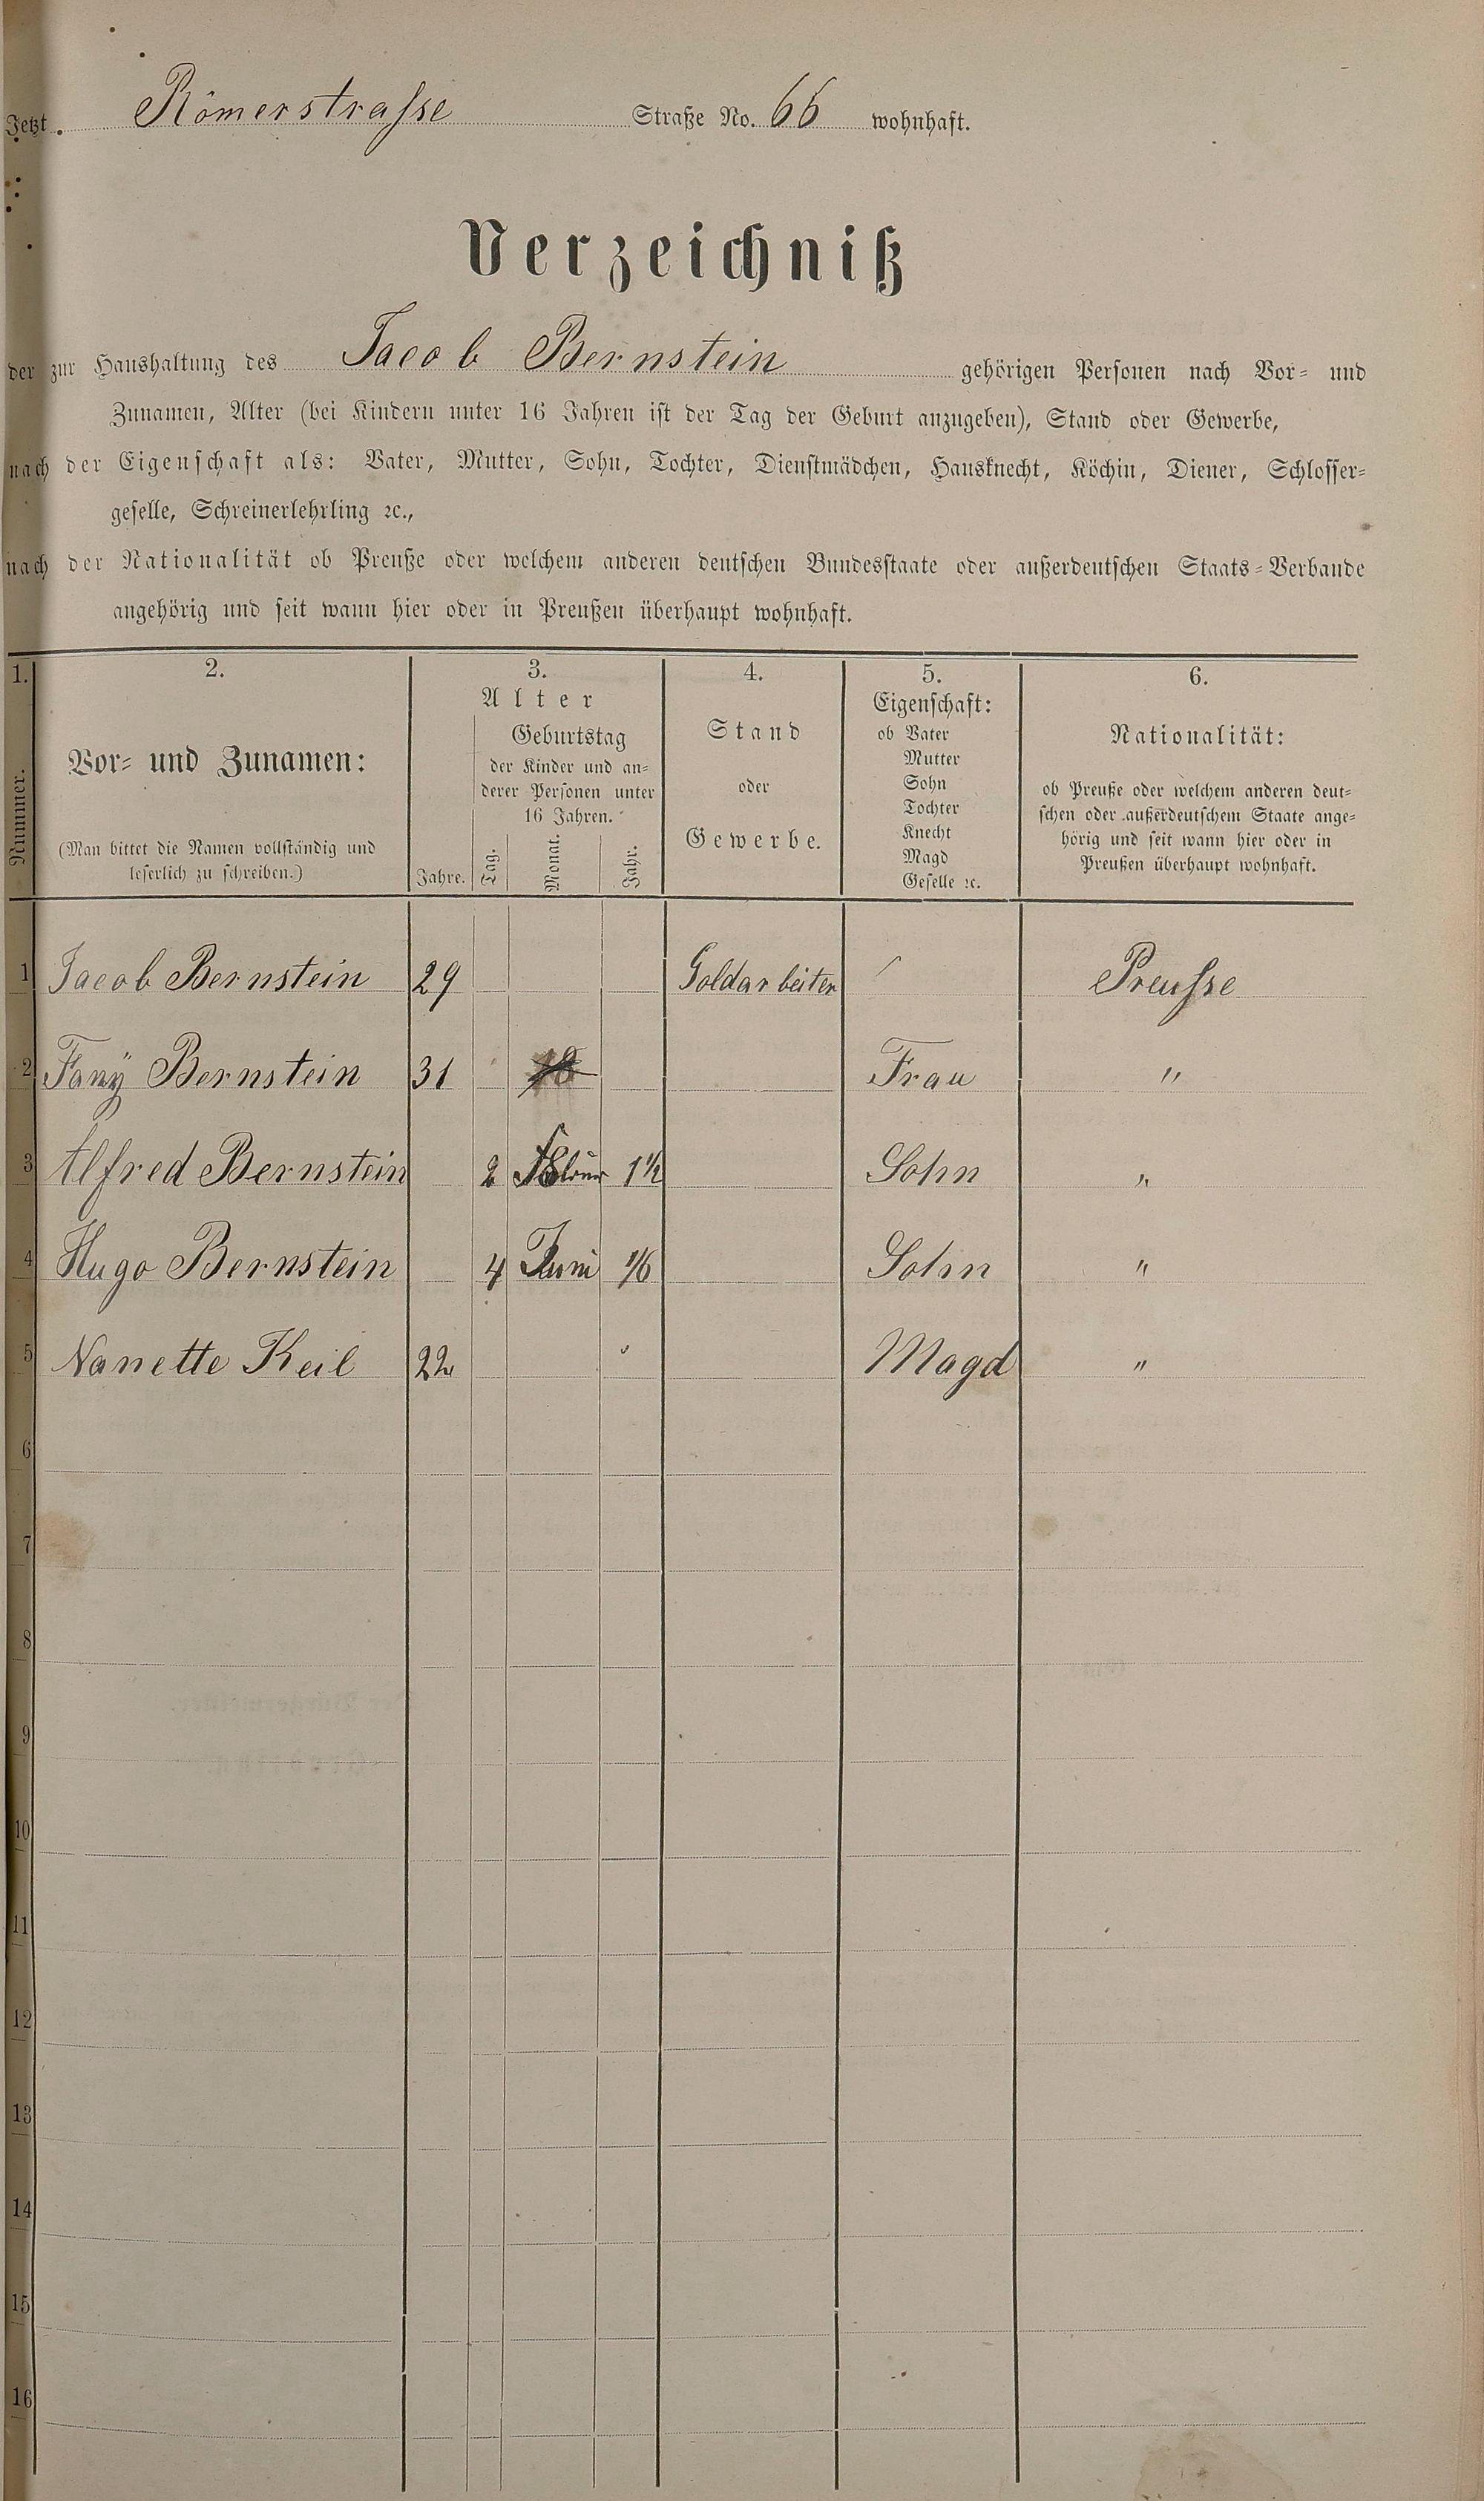 Jetzt Römerstraße Straße No. 66 wohnhaft.
Verzeichniß
der zur Haushaltung des Jacob Bernstein gehörigen Personen nach Vor- und
Zunamen, Alter (bei Kindern unter 16 Jahren ist der Tag der Geburt anzugeben), Stand oder Gewerbe,
nach der Eigenschaft als: Vater, Mutter, Sohn, Tochter, Dienstmädchen, Hausknecht, Köchin, Diener, Schlosser-
geselle, Schreinerlehrling ꝛc.,
nach der Nationalität ob Preuße oder welchem anderen deutschen Bundesstaate oder außerdeutschen Staats-Verbande
angehörig und seit wann hier oder in Preußen überhaupt wohnhaft.
1. 2. 3. 4. 5. 6.
Nummer.
Vor- und Zunamen:
(Man bittet die Namen vollständig und
leserlich zu schreiben.)
Alter
Jahre.
Geburtstag
der Kinder und an-
derer Personen unter
16 Jahren.
Tag. Monat. Jahr.
Stand
oder
Gewerbe.
Eigenschaft:
ob Vater
Mutter
Sohn
Tochter
Knecht
Magd
Geselle ꝛc.
Nationalität:
ob Preuße oder welchem anderen deut-
schen oder außerdeutschem Staate ange-
hörig und seit wann hier oder in
Preußen überhaupt wohnhaft.
1 Jacob Bernstein 29 Goldarbeiter Preuße
2 Fanÿ Bernstein 31 Frau "
3 Alfred Bernstein 2 1½ Sohn "
4 Hugo Bernstein 4 Juni 1/6 Sohn "
5 Nanette Keil 22 Magd "
6
7
8
9
10
11
12
13
14
15
16